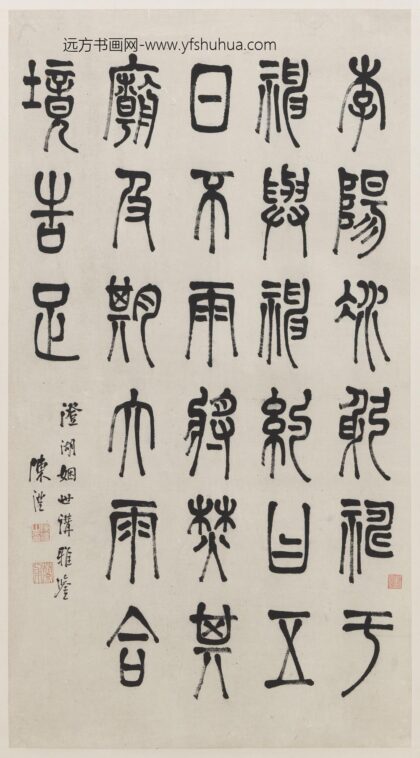 远方书画网-www.yfshuhua.com
李陽冰躬祈于
神與神約曰五
日不雨將焚其
廟及期大雨合
境告足
澄湖姻世講雅鑒
陳澧